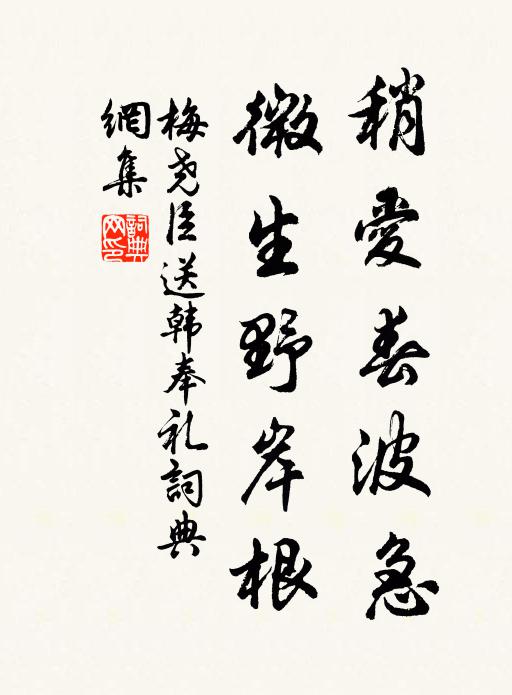 稍愛春波急
微生野岸根
梅尧臣送韩奉礼詞典
網集
詞典网印